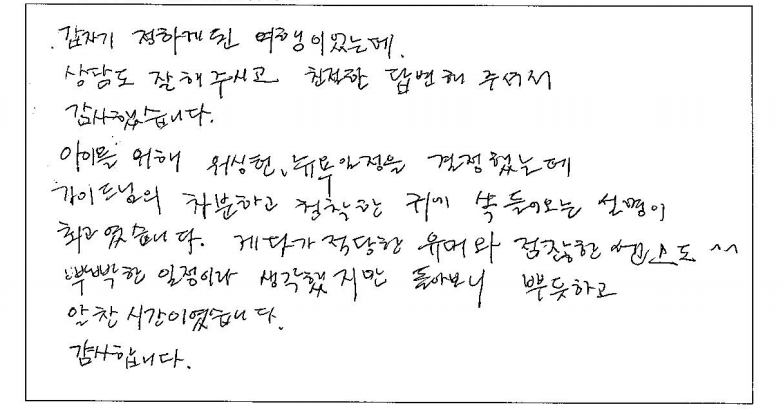 갑자기 정하게된 여행이었는데.
상담도 잘해주시고 친절한 답변해 주셔서
감사했습니다.
아이들 위해 워싱턴, 뉴욕일정을 결정했는데
가이드님의 차분하고 침착한 귀에 쏙 들어오는 설명이
최고였습니다. 게다가 적당한 유머와 점잖한 센스도 ^^
빡빡한 일정이라 생각했지만 돌아보니 뿌듯하고
알찬 시간이였습니다.
감사합니다.